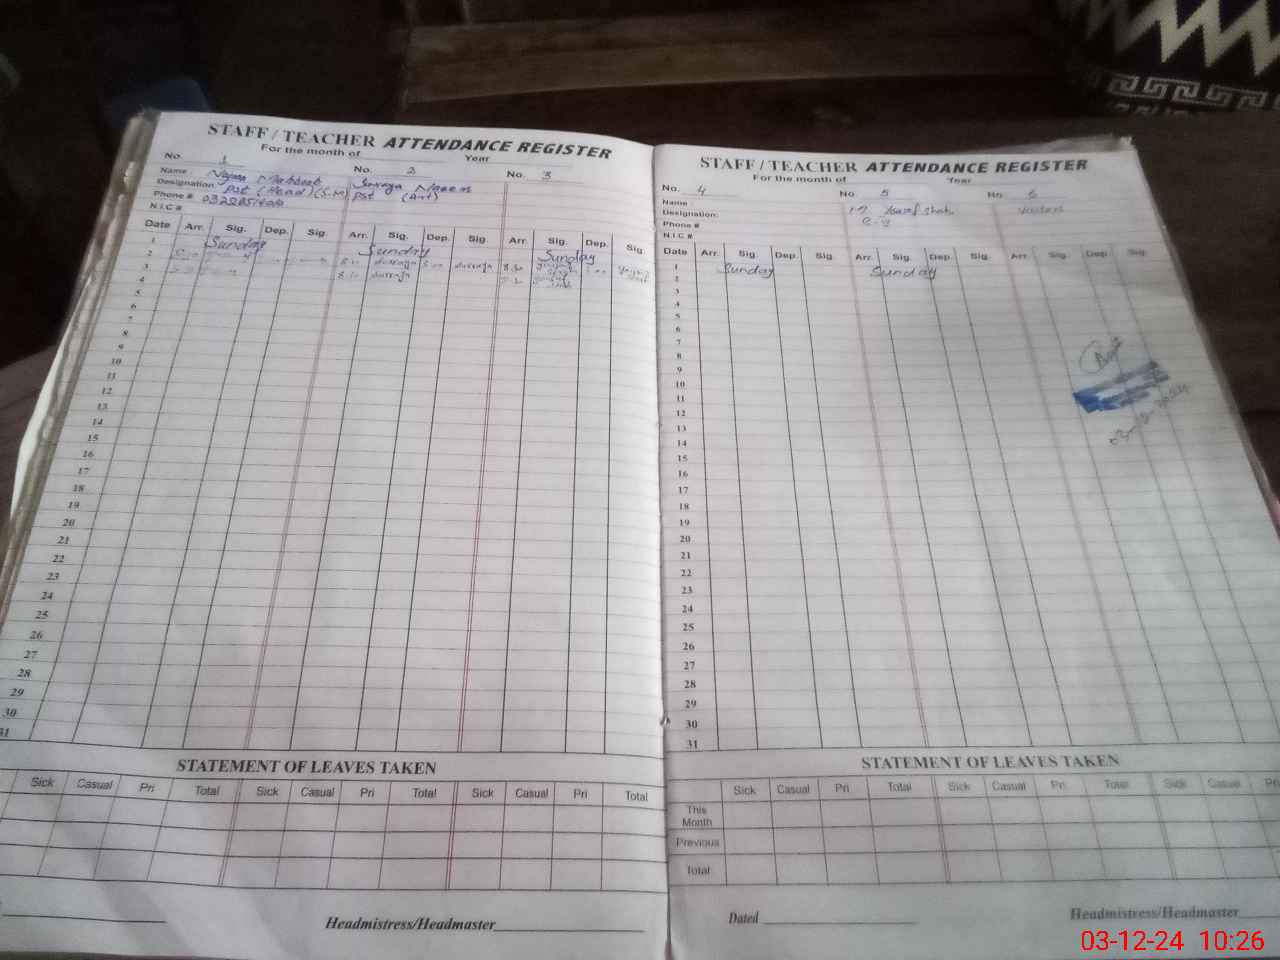 STAFF / TEACHER ATTENDANCE REGISTER
For the month of Year
No. 1 No. 2 No. 3
Name Najma Suraya
Designation Pst (Head) (S.M) Pst (Art)
Phone #
N.I.C #
Date Arr. Sig. Dep. Sig. Arr. Sig. Dep. Sig. Arr. Sig. Dep. Sig.
1 Sunday Sunday Sunday
2
3
4
5
6
7
8
9
10
11
12
13
14
15
16
17
18
19
20
21
22
23
24
25
26
27
28
29
30
31
STATEMENT OF LEAVES TAKEN
Sick Casual Pri Total Sick Casual Pri Total Sick Casual Pri Total
Headmistress/Headmaster
STAFF / TEACHER ATTENDANCE REGISTER
For the month of Year
No. 4 No 5 No 6
Name M Shah Visitors
Designation:
Phone #
N.I.C #
Date Arr. Sig. Dep. Sig. Arr. Sig. Dep. Sig. Arr. Sig. Dep. Sig.
1 Sunday Sunday
2
3
4
5
6
7
8
9
10
11
12
13
14
15
16
17
18
19
20
21
22
23
24
25
26
27
28
29
30
31
STATEMENT OF LEAVES TAKEN
Sick Casual Pri Total Sick Casual Pri Total Sick Casual Pri
This Month
Previous
Total
Dated Headmistress/Headmaster
03-12-24 10:26